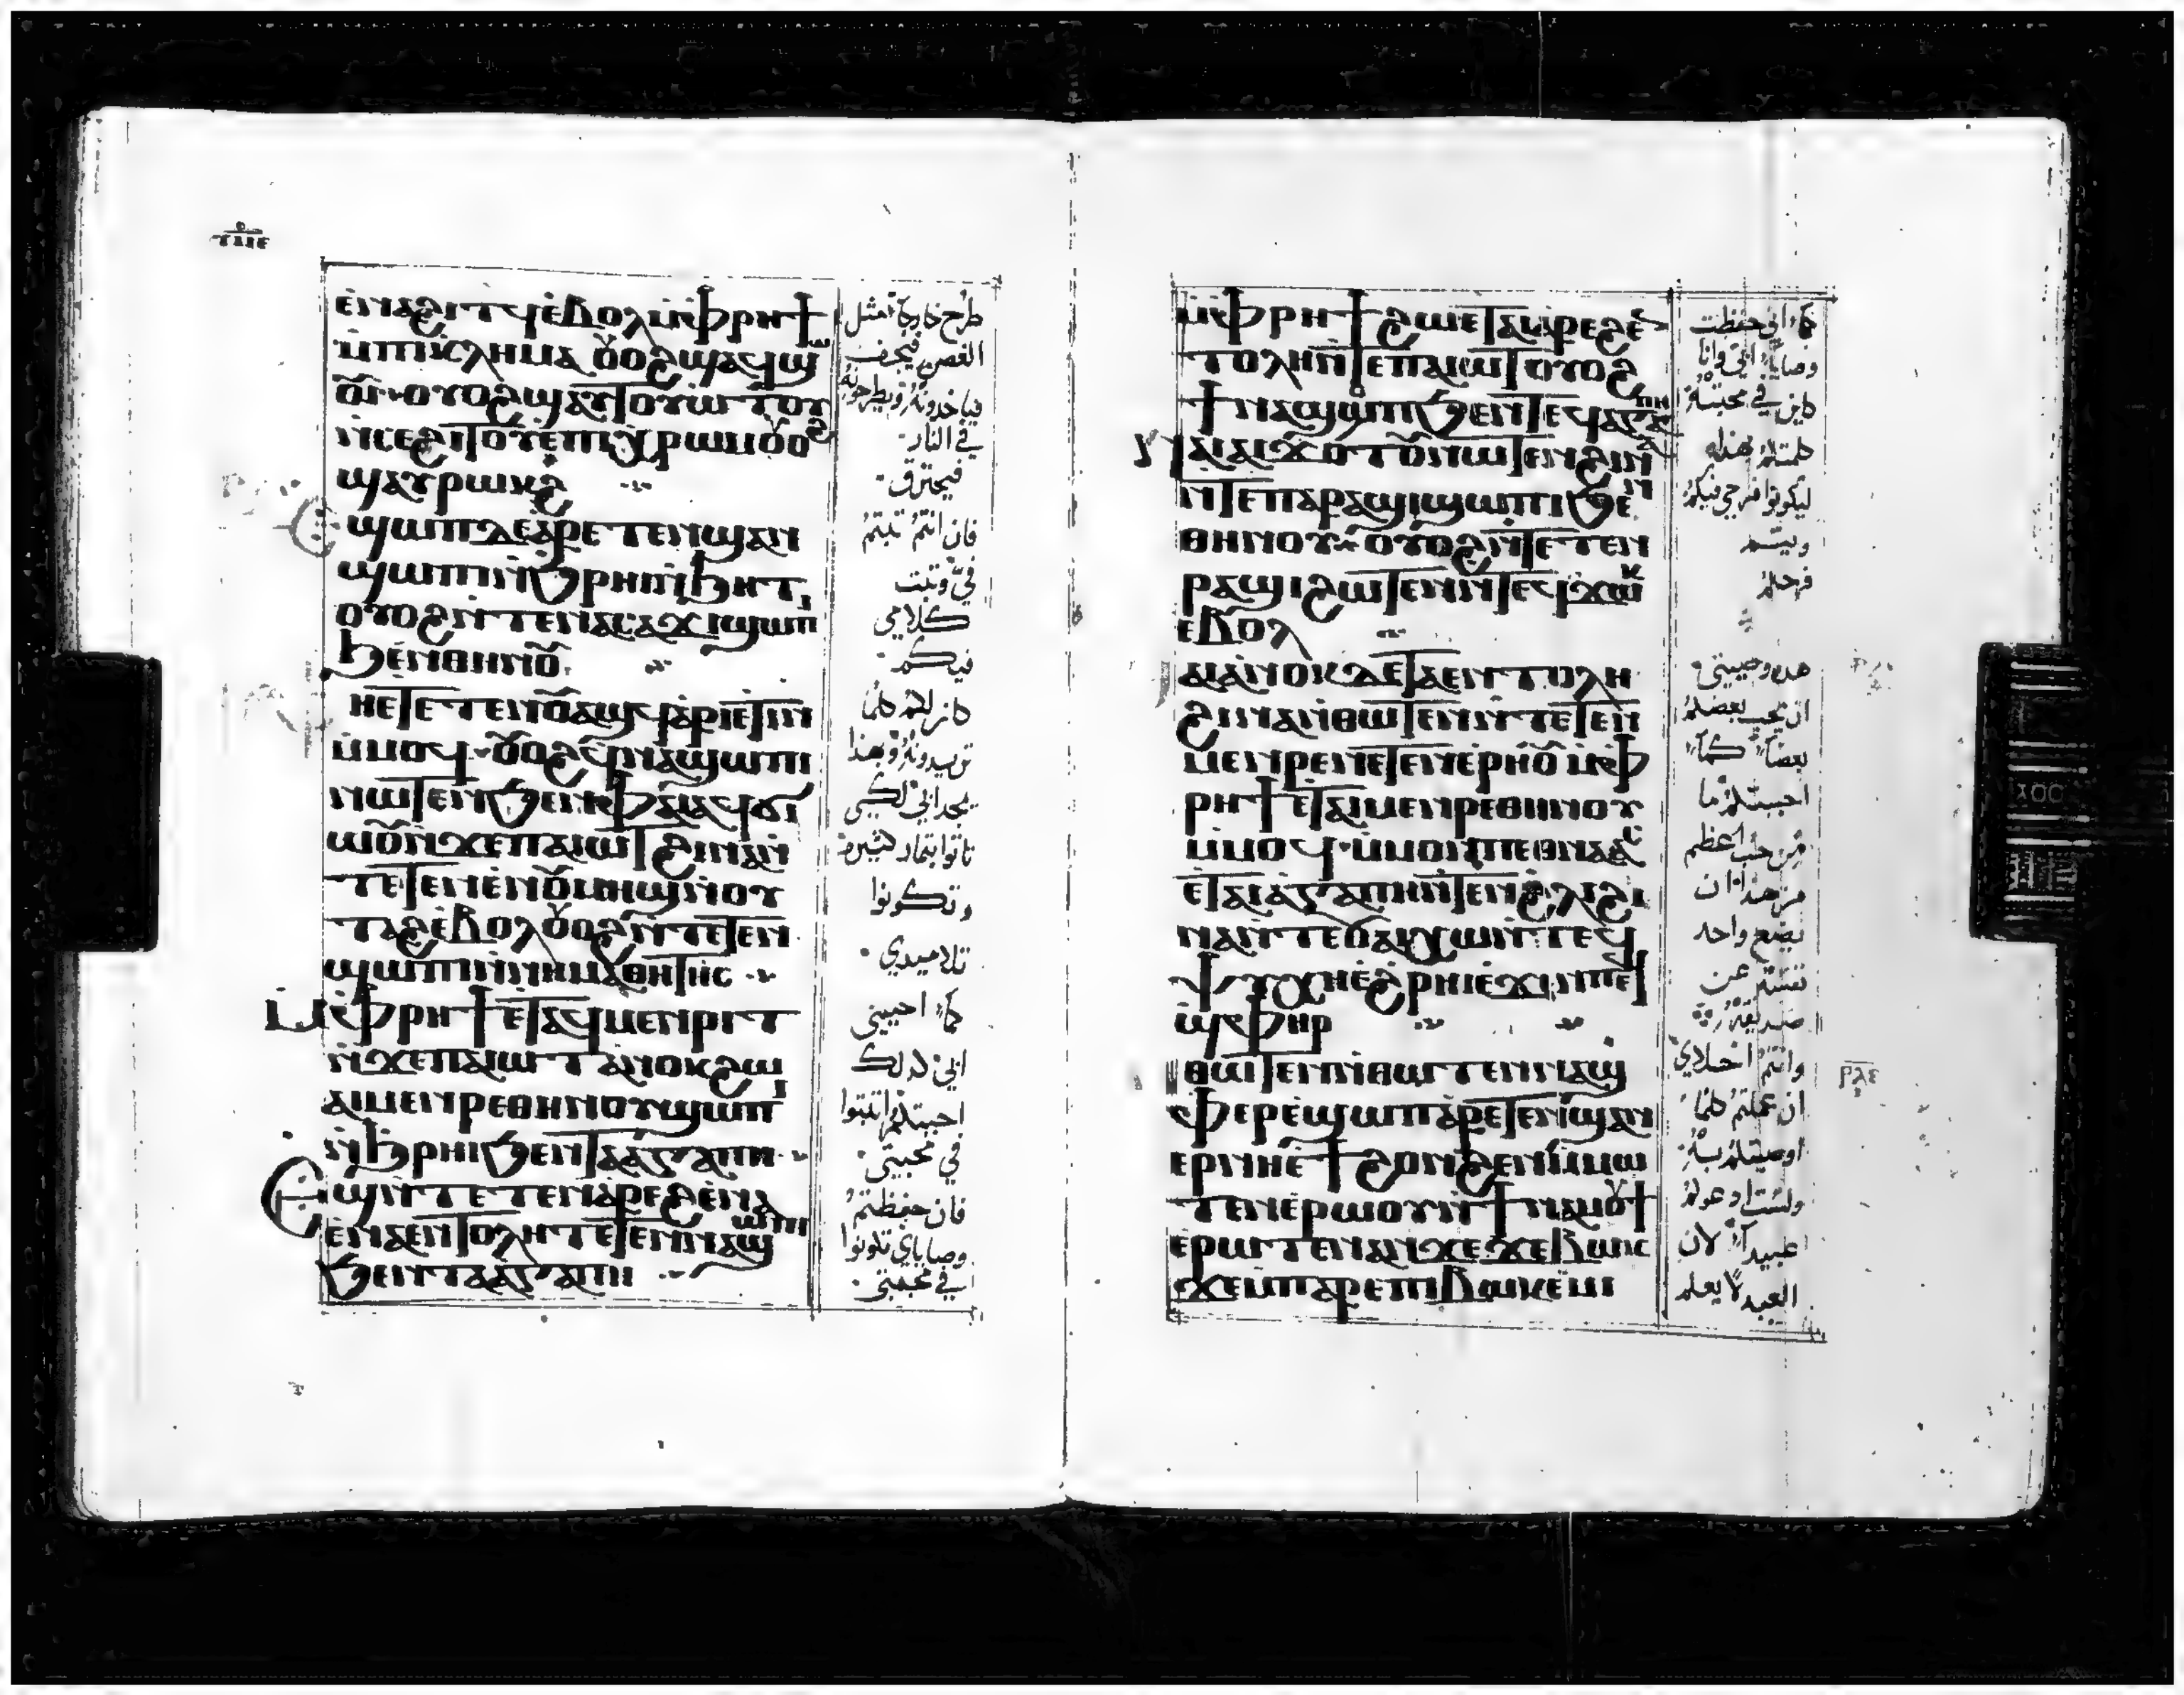 ⲉⲛⲁϩⲓⲧϥ ⲉⲃⲟⲗ ⲙⲫⲣⲏϯ
ⲙⲡⲓⲕⲗⲏⲙⲁ ⲟⲩⲟϩ ϣⲁϥϣⲱ
ⲟⲩⲓ ⲟⲩⲟϩ ϣⲁⲩⲑⲟⲩⲱⲧⲟⲩ
ⲛⲥⲉϩⲓⲧⲟⲩ ⲉⲡⲓⲭⲣⲱⲙ ⲟⲩⲟϩ
ϣⲁⲩⲣⲱⲕϩ
ⲉϣⲱⲡ ⲇⲉ ⲁⲣⲉⲧⲉⲛϣⲁⲛ
ϣⲱⲡⲓ ⲛϧⲣⲏⲓ ⲛϧⲏⲧ
ⲟⲩⲟϩ ⲛⲧⲉⲛⲁⲥⲁϫⲓ ϣⲱⲡⲓ
ϧⲉⲛ ⲑⲏⲛⲟⲩ
ⲫⲏ ⲉⲧⲉⲧⲉⲛⲟⲩⲁϣϥ ⲁⲣⲓⲉⲧⲓⲛ
ⲙⲙⲟϥ ⲟⲩⲟϩ ⲉϥⲛⲁϣⲱⲡⲓ
ⲛⲱⲧⲉⲛ ϧⲉⲛ ⲫⲁⲓ ⲁϥϭⲓ
ⲱⲟⲩ ⲛϫⲉ ⲡⲁⲓⲱⲧ ϩⲓⲛⲁ ⲛ
ⲧⲉⲧⲉⲛⲉⲛ ⲟⲩⲙⲏϣ ⲛⲟⲩ
ⲧⲁϩ ⲉⲃⲟⲗ ⲟⲩⲟϩ ⲛⲧⲉⲧⲉⲛ
ϣⲱⲡⲓ ⲛⲏⲓ ⲙⲙⲁⲑⲏⲧⲏⲥ
ⲙⲫⲣⲏϯ ⲉⲧⲁϥⲙⲉⲛⲣⲓⲧ
ⲛϫⲉ ⲡⲁⲓⲱⲧ ⲁⲛⲟⲕ ϩⲱ
ⲁⲓⲙⲉⲛⲣⲉ ⲑⲏⲛⲟⲩ ϣⲱⲡⲓ
ⲛϧⲣⲏⲓ ϧⲉⲛ ⲧⲁⲁⲅⲁⲡⲏ
ⲉϣⲱⲡ ⲁⲣⲉⲧⲉⲛϣⲁⲛⲁⲣⲉϩ
ⲉⲛⲁⲉⲛⲧⲟⲗⲏ ⲧⲉⲧⲉⲛⲛⲁϣⲱⲡⲓ
ϧⲉⲛ ⲧⲁⲁⲅⲁⲡⲏ
طرح خارجا مثل
الغصن فيجف
فياخدونه ويطرحونه
في النار
فيحترق
فان انتم ثبتم
في وثبت
كلامي
فيكم
كان لكم كلما
تريدونه وبهذا
يمجد ابي لكي
تاتوا بثمار كثيرة
وتكونوا
تلاميدي
كما احبني
ابي كدلك
احببتكم اثبتوا
في محبتي
فان حفظتم
وصاياي تكونوا
في محبتي
ⲙⲫⲣⲏϯ ϩⲱ ⲉⲧⲁⲓⲁⲣⲉϩ ⲉⲛ
ⲧⲟⲗⲏ ⲛⲧⲉ ⲡⲁⲓⲱⲧ ⲟⲩⲟϩ
ϯⲛⲁϣⲱⲡ ϧⲉⲛ ⲧⲉϥⲁⲅⲁⲡⲏ
ⲛⲁⲓ ⲁⲓϫⲟⲧⲟⲩ ⲛⲱⲧⲉⲛ ϩⲓⲛⲁ
ⲛⲧⲉ ⲡⲁⲣⲁϣⲓ ϣⲱⲡⲓ ϧⲉⲛ
ⲑⲏⲛⲟⲩ ⲟⲩⲟϩ ⲛⲧⲉ ⲡⲉⲧⲉⲛ
ⲣⲁϣⲓ ϩⲱⲧⲉⲛ ⲛⲧⲉϥϫⲱⲕ
ⲉⲃⲟⲗ
ⲑⲁⲓ ⲁⲛⲟⲕ ⲇⲉ ⲧⲁⲉⲛⲧⲟⲗⲏ
ϩⲓⲛⲁ ⲛⲑⲱⲧⲉⲛ ⲛⲧⲉⲧⲉⲛ
ⲙⲉⲛⲣⲉ ⲛⲉⲧⲉⲛⲉⲣⲏⲟⲩ ⲙⲫ
ⲣⲏϯ ⲉⲧⲁⲓⲙⲉⲛⲣⲉ ⲑⲏⲛⲟⲩ
ⲙⲙⲟϥ ⲙⲙⲟⲛ ⲡⲉⲑⲛⲁⲁϥ
ⲉⲧⲁⲓⲁⲅⲁⲡⲏ ⲛⲧⲉⲛ ϩⲗⲓ ϩⲓ
ⲛⲁ ⲛⲧⲉ ⲟⲩⲁⲓ ⲭⲱ ⲛⲧⲉϥ
ⲯⲩⲭⲏ ⲉϩⲣⲏⲓ ⲉϫⲉⲛ ⲡⲉϥ
ϣⲫⲏⲣ
ⲛⲑⲱⲧⲉⲛ ⲛⲑⲱⲧⲉⲛ ⲛⲁϣ
ⲫⲉⲣ ⲉϣⲱⲡ ⲁⲣⲉⲧⲉⲛϣⲁⲛ
ⲉⲣ ⲛⲏ ⲉϯϩⲟⲛϩⲉⲛ ⲙⲙⲱ
ⲧⲉⲛ ⲉⲣⲱⲟⲩ ⲛϯⲛⲁⲙⲟⲩϯ
ⲉⲣⲱⲧⲉⲛ ⲁⲛ ϫⲉ ϫⲉ ⲃⲱⲕ
ϫⲉ ⲙⲡⲁⲣⲉ ⲡⲓⲃⲱⲕ ⲉⲙⲓ
كما اني حفظت
وصايا ابي وانا
كاين في محبته
كلمتكم بهذه
ليكونوا فرحي فيكم
ويتم
فرحكم
هده وصيتي
ان يحب بعضكم
بعضا كما
احببتكم ما
من حب اعظم
من هذا ان
يضع واحد
نفسه عن
صديقه
وانتم اخلاي
ان عملتم كلما
اوصيتكم به
ولست ادعوكم
عبيدا لان
العبد لا يعلم
ⲣⲗⲉ